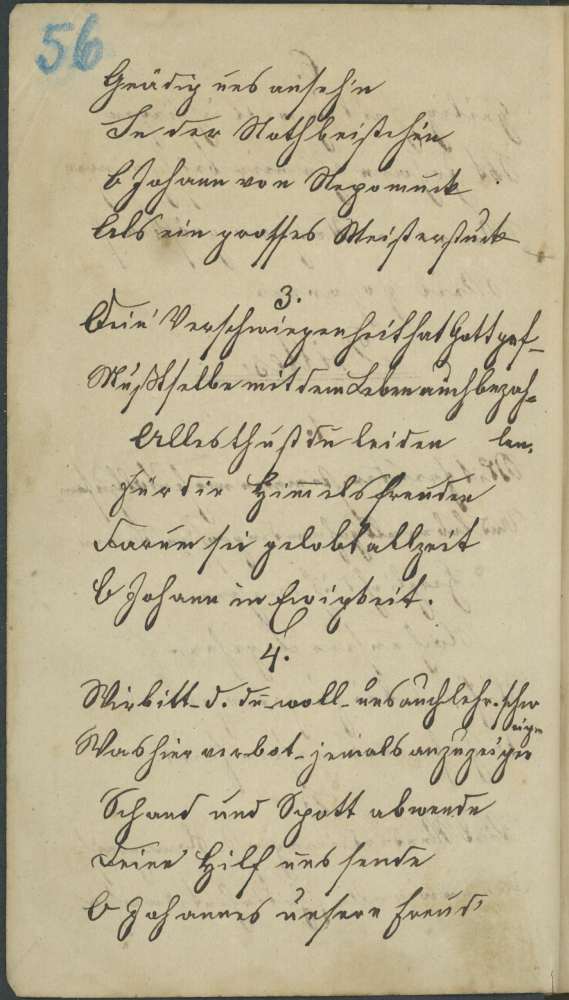 56
Gnädig uns anseh'n
In der Noth beisteh'n
O Johann von Nepomuck
Als ein grosses Meisterstuck
3.
Dein' Verschwiegenheit hat Gott gef-
Mußt selbe mit dem Leben auch bezah-
Alles thust du leiden len.
Für die Himelsfreuden
Darum sei gelobt allzeit
O Johann in Ewigkeit.
4.
Wir bitt- d. du woll- uns auch lehr- schw
eigen
Was hier verbot- jemals anzuzeigen
Schand und Spott abwende
Deine Hilf uns sende
O Johannes unsere Freud'